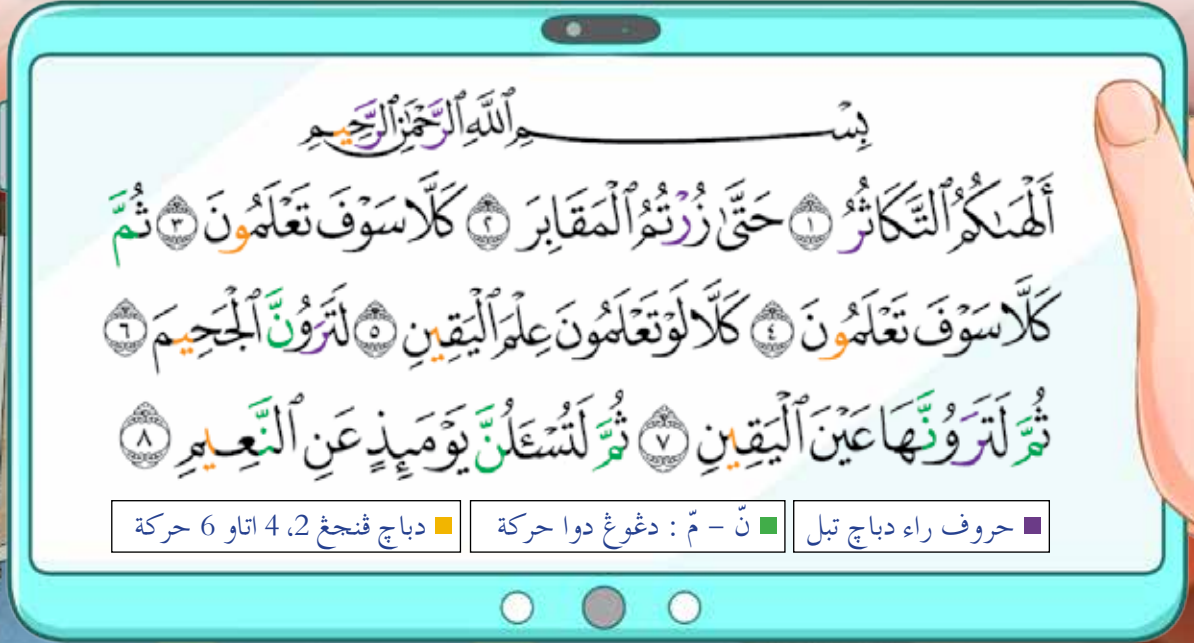 بِسْمِ ٱللَّهِ ٱلرَّحْمَٰنِ ٱلرَّحِيمِ
أَلْهَىٰكُمُ ٱلتَّكَاثُرُ ١ حَتَّىٰ زُرْتُمُ ٱلْمَقَابِرَ ٢ كَلَّا سَوْفَ تَعْلَمُونَ ٣ ثُمَّ
كَلَّا سَوْفَ تَعْلَمُونَ ٤ كَلَّا لَوْ تَعْلَمُونَ عِلْمَ ٱلْيَقِينِ ٥ لَتَرَوُنَّ ٱلْجَحِيمَ ٦
ثُمَّ لَتَرَوُنَّهَا عَيْنَ ٱلْيَقِينِ ٧ ثُمَّ لَتُسْـَٔلُنَّ يَوْمَئِذٍ عَنِ ٱلنَّعِيمِ ٨
حروف راء دباچ تبل
نّ – مّ : دڠوڠ دوا حركة
دباچ ڤنجڠ 2، 4 اتاو 6 حركة